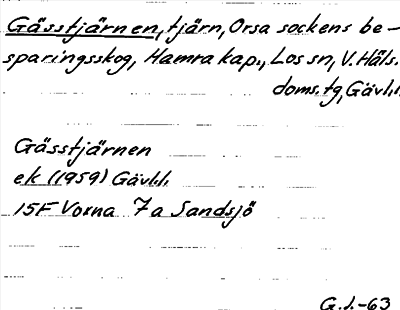 Gässtjärnen, tjärn, Orsa sockens be-
sparingsskog, Hamra kap., Los sn, V. Häls.
doms.tg, Gävl.l.
Gässtjärnen
ek (1959) Gävl.l.
15F Vorna 7a Sandsjö
G.J.-63